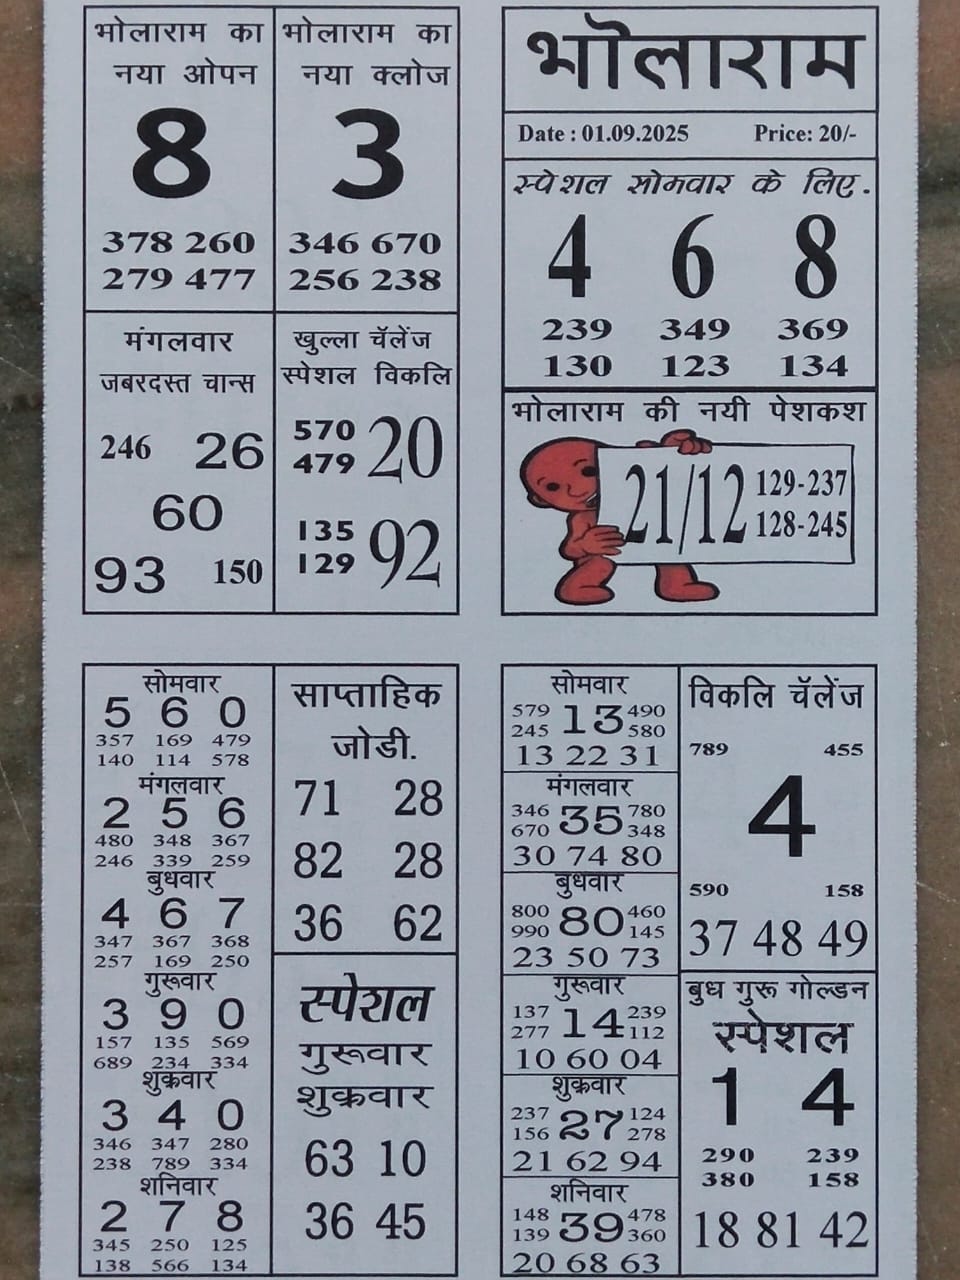 भोलाराम का
नया ओपन
8
378 260
279 477
भोलाराम का
नया क्लोज
3
346 670
256 238
मंगलवार
जबरदस्त चान्स
246 26
60
93 150
खुल्ला चॅलेंज
स्पेशल विकलि
570
479
20
135
129
92
भोलाराम
Date : 01.09.2025 Price: 20/-
स्पेशल सोमवार के लिए.
4 6 8
239 349 369
130 123 134
भोलाराम की नयी पेशकश
21/12
129-237
128-245
सोमवार
5 6 0
357 169 479
140 114 578
मंगलवार
2 5 6
480 348 367
246 339 259
बुधवार
4 6 7
347 367 368
257 169 250
गुरूवार
3 9 0
157 135 569
689 234 334
शुक्रवार
3 4 0
346 347 280
238 789 334
शनिवार
2 7 8
345 250 125
138 566 134
साप्ताहिक
जोडी.
71 28
82 28
36 62
स्पेशल
गुरूवार
शुक्रवार
63 10
36 45
सोमवार
579 13 490
245 580
13 22 31
मंगलवार
346 35 780
670 348
30 74 80
बुधवार
800 80 460
990 145
23 50 73
गुरूवार
137 14 239
277 112
10 60 04
शुक्रवार
237 27 124
156 278
21 62 94
शनिवार
148 39 478
139 360
20 68 63
विकलि चॅलेंज
789 455
4
590 158
37 48 49
बुध गुरू गोल्डन
स्पेशल
1 4
290 239
380 158
18 81 42